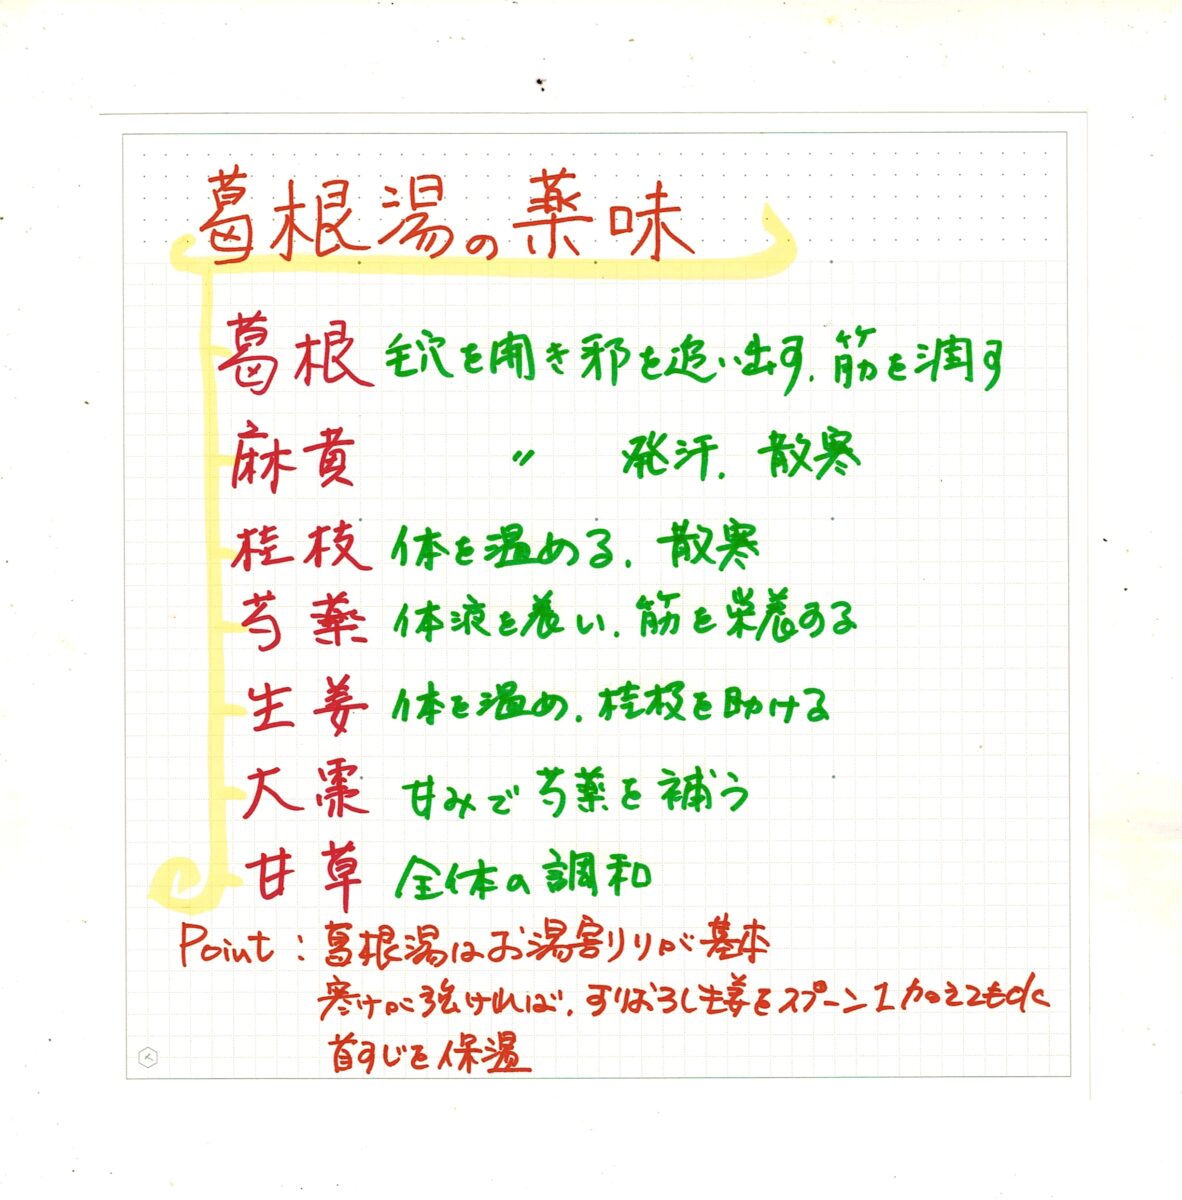 葛根湯の薬味
葛根 毛穴を開き邪を追い出す、筋を潤す
麻黄 〃 発汗、散寒
桂枝 体を温める、散寒
芍薬 体液を養い、筋を栄養する
生姜 体を温め、桂枝を助ける
大棗 甘みで芍薬を補う
甘草 全体の調和
Point：葛根湯はお湯割りが基本
寒けが強ければ、すりおろし生姜をスプーン1加えてもok
首すじを保温